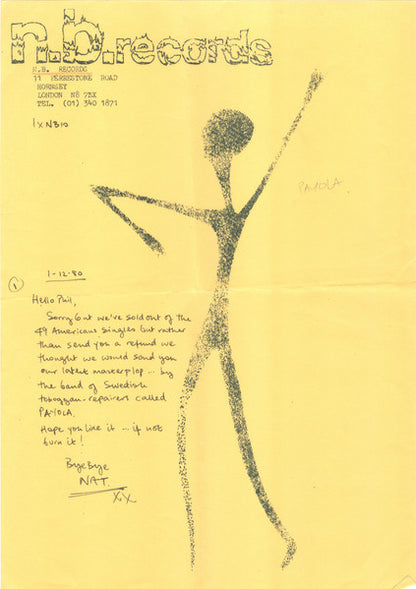 n.b.records
N.B. RECORDS
11 FERRESTONE ROAD
HORNSEY
LONDON N8 7BX
TEL. (01) 340 1871
1 x NB10
PAYOLA.
1-12-80
1
Hello Phil,
Sorry but we've sold out of the
49 Americans singles but rather
than send you a refund we
thought we would send you
our latest masterplop ... by
the band of Swedish
toboggan-repairers called
PAYOLA.
Hope you like it ... if not
burn it!
Bye Bye
NAT
XX